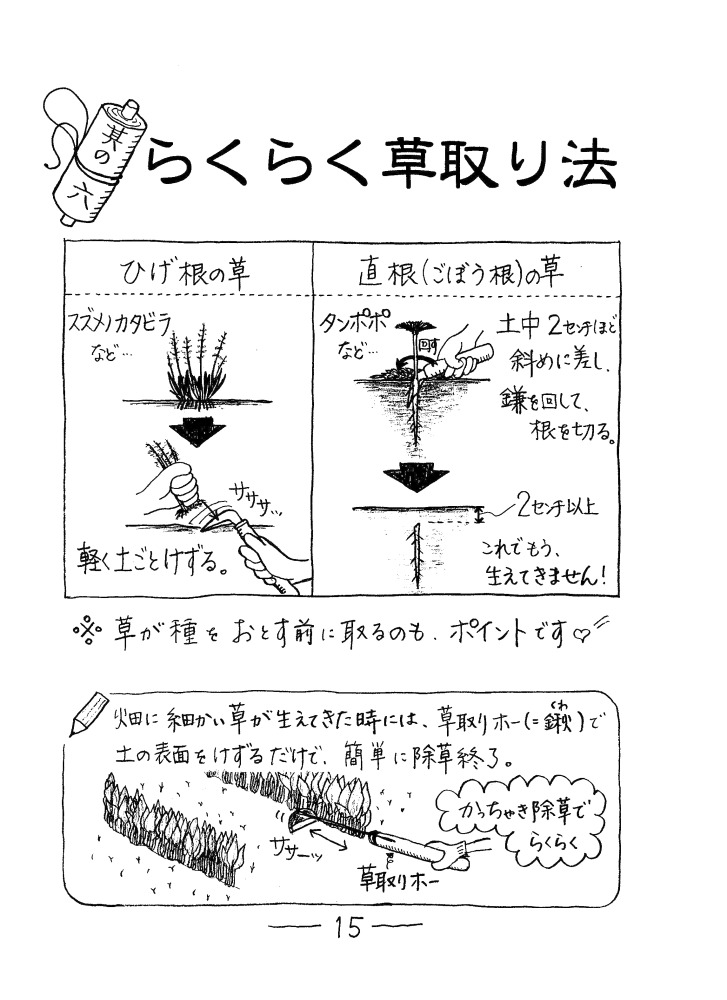 其の六
らくらく草取り法
ひげ根の草
スズメノカタビラ
など…
ササササッ
軽く土ごとけずる。
直根(ごぼう根)の草
タンポポ
など…
回す
土中2センチほど
斜めに差し、
鎌を回して、
根を切る。
2センチ以上
これでもう、
生えてきません!
※草が種をおとす前に取るのも、ポイントです♡
畑に細かい草が生えてきた時には、草取りホー(=鍬)で
くわ
土の表面をけずるだけで、簡単に除草終了。
ササーッ
草取りホー
かっちゃき除草で
らくらく
15